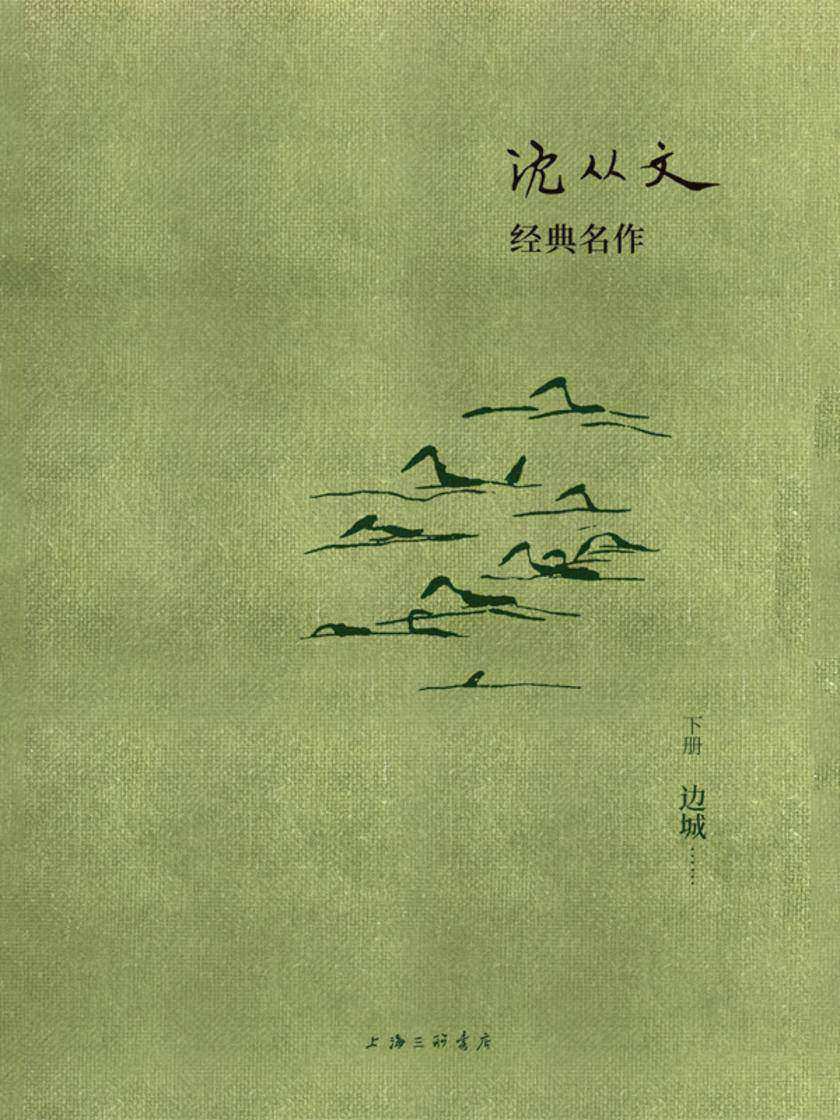 沈从文
经典名作
下册 边城……
上海三联书店